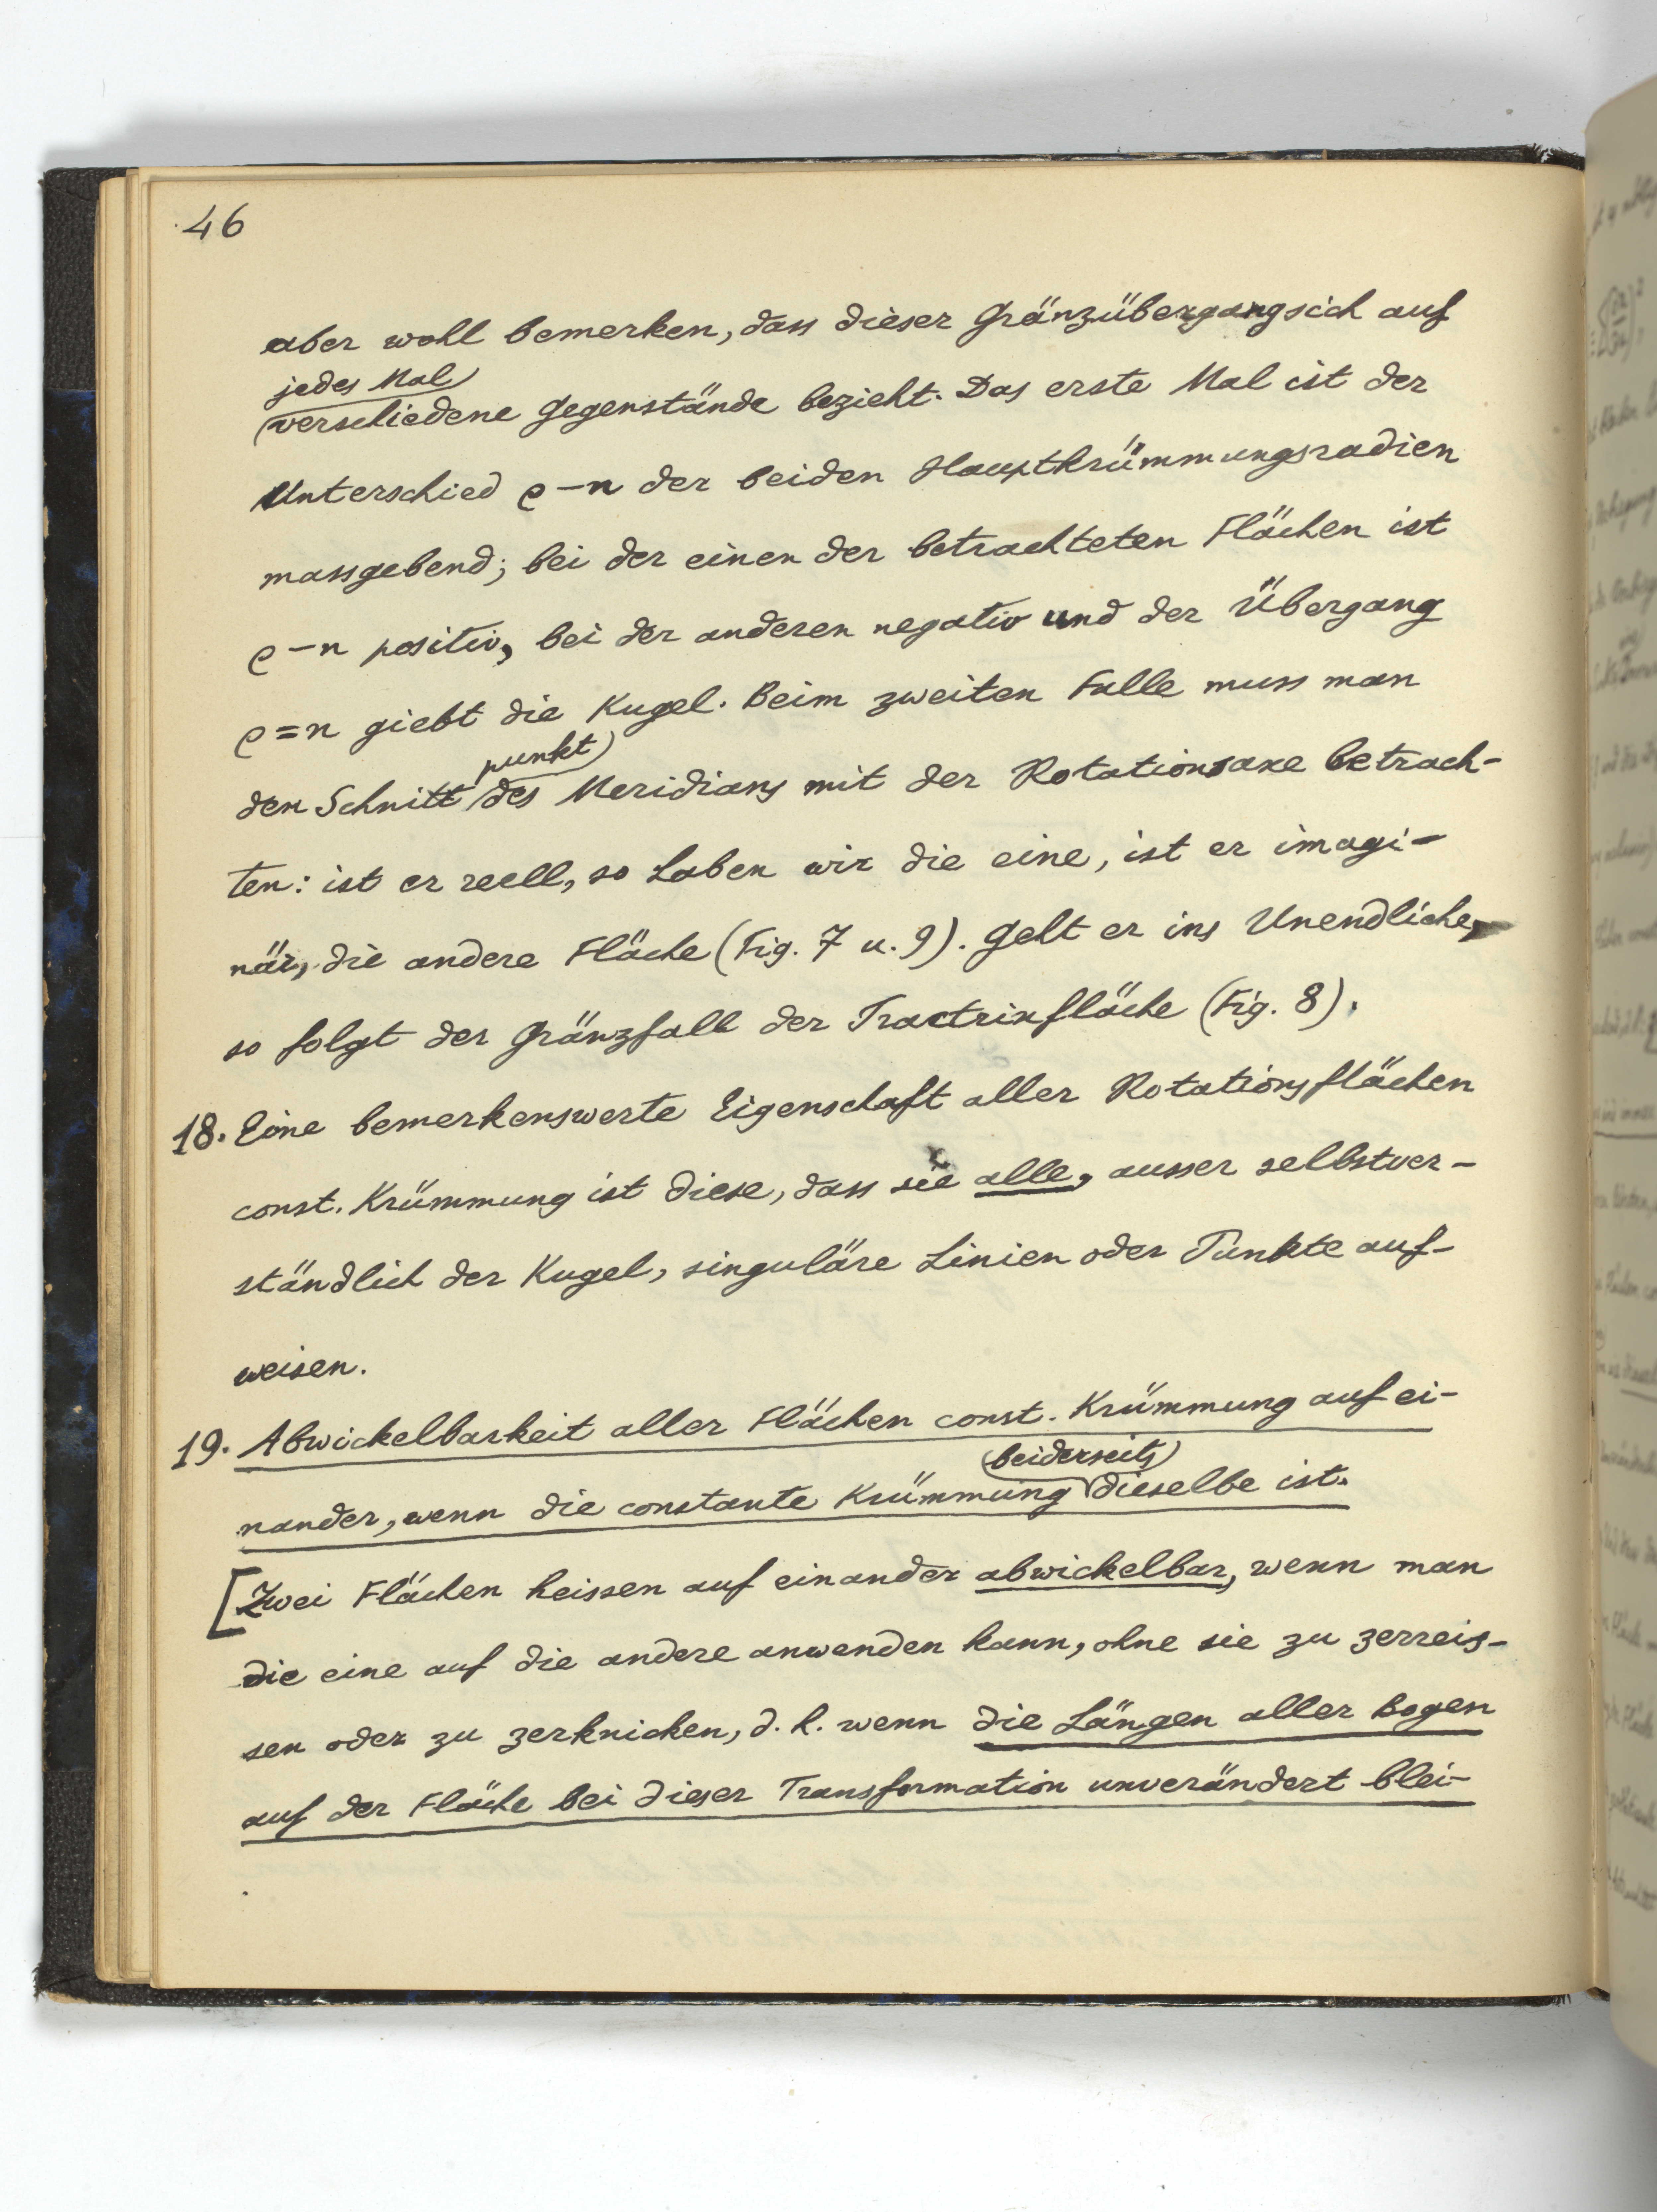 46
aber wohl bemerken, dass dieser Gränzübergang sich auf
jedes Mal
verschiedene Gegenstände bezieht. Das erste Mal ist der
Unterschied ρ-n der beiden Hauptkrümmungsradien
massgebend; bei der einen der betrachteten Flächen ist
ρ-n positiv, bei der anderen negativ und der Übergang
ρ=n giebt die Kugel. Beim zweiten Falle muss man
punkt
den Schnitt des Meridians mit der Rotationsaxe betrach-
ten: ist er reell, so haben wir die eine, ist er imagi-
när, die andere Fläche (Fig. 7 u. 9). Geht er ins Unendliche,
so folgt der Gränzfall der Tractrixfläche (Fig. 8).
18. Eine bemerkenswerte Eigenschaft aller Rotationsflächen
const. Krümmung ist diese, dass sie alle, ausser selbstver-
ständlich der Kugel, singuläre Linien oder Punkte auf-
weisen.
19. Abwickelbarkeit aller Flächen const. Krümmung auf ei-
beiderseits
nander, wenn die constante Krümmung dieselbe ist.
[Zwei Flächen heissen auf einander abwickelbar, wenn man
die eine auf die andere anwenden kann, ohne sie zu zerreis-
sen oder zu zerknicken, d. h. wenn die Längen aller Bogen
auf der Fläche bei dieser Transformation unverändert blei-